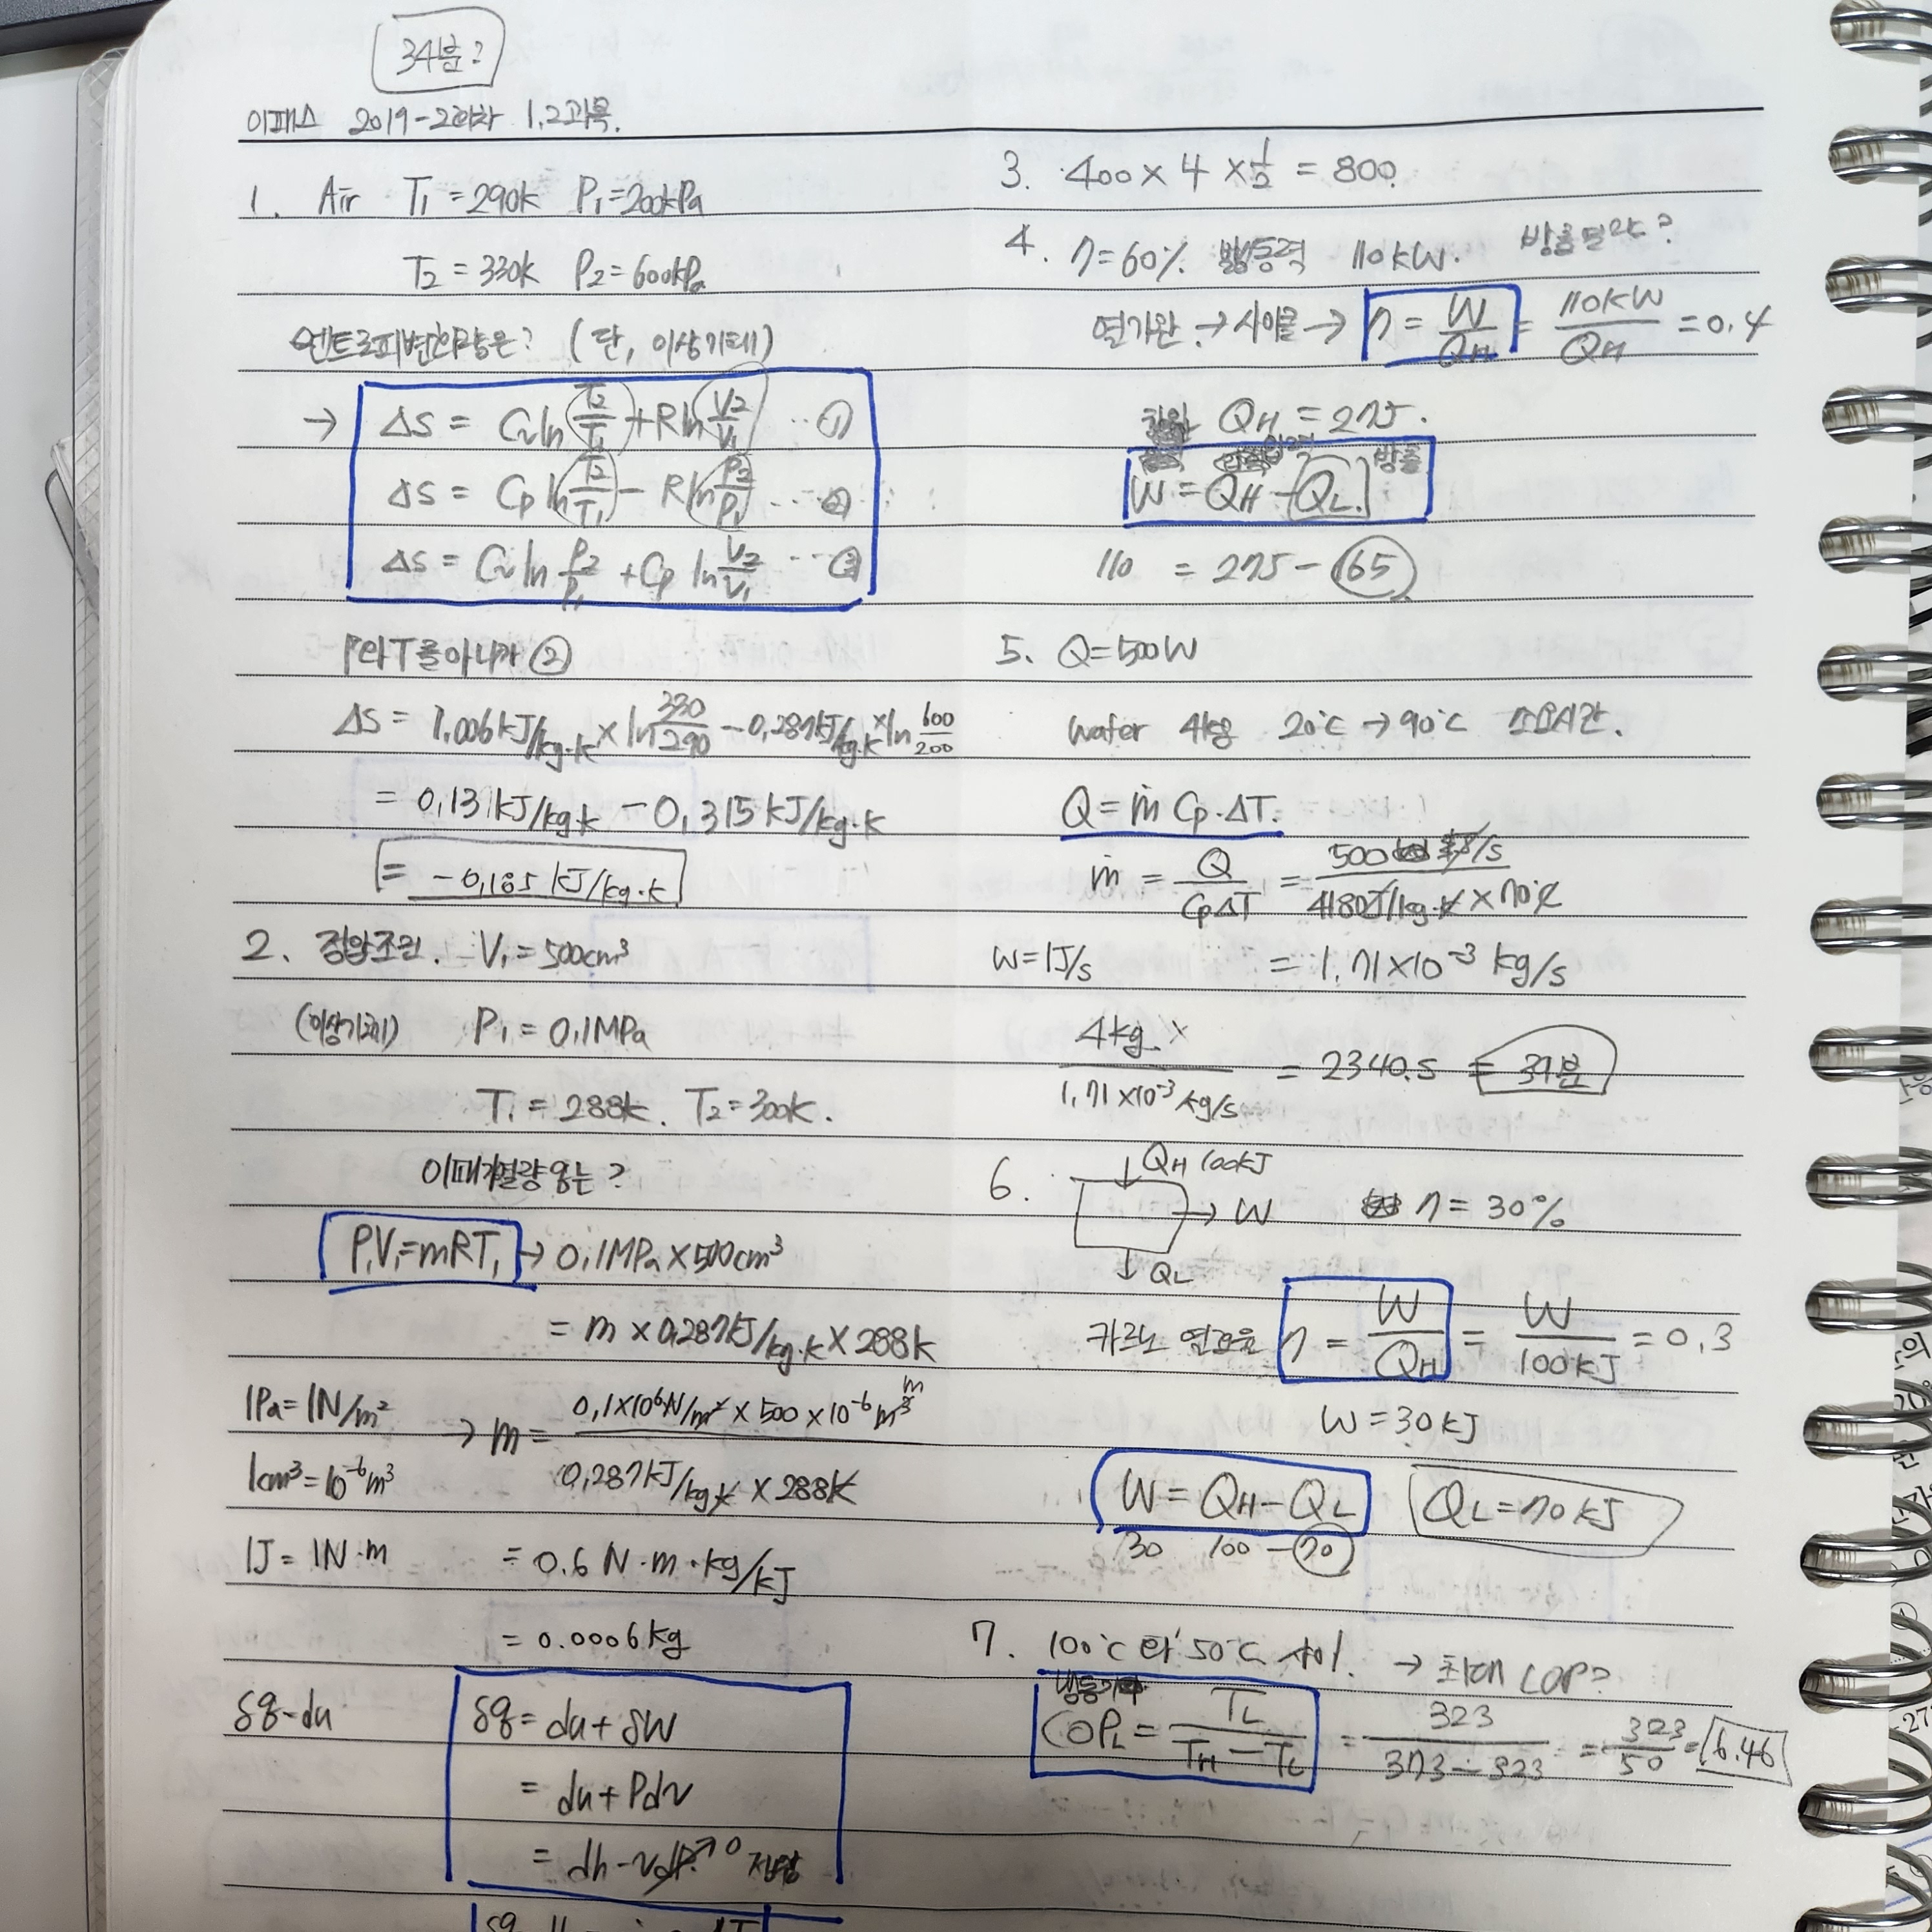 34분?
이패스 2019-2회차 1,2과목.
1. Air T₁=290k P₁=200kPa
T₂=330k P₂=600kPa
엔트로피변화량은? (단, 이상기체)
→ ΔS = Cv ln T₂/T₁ + R ln V₂/V₁ … ①
ΔS = Cp ln T₂/T₁ − R ln P₂/P₁ … ②
ΔS = Cv ln P₂/P₁ + Cp ln V₂/V₁ … ③
P와 T를 아니까 ②
ΔS = 1,006kJ/kg·k × ln 330/290 − 0,287kJ/kg·k × ln 600/200
= 0,131kJ/kg·k − 0,315kJ/kg·k
= −0,185 kJ/kg·k
2. 정압조건. V₁=500cm³
(이상기체) P₁=0,1MPa
T₁=288k. T₂=300k.
이때 가열량은?
P₁V₁=mRT₁ → 0,1MPa×500cm³
= m×0,287kJ/kg·k×288k
1Pa=1N/m² → m = 0,1×10⁶N/m²×500×10⁻⁶m³ / 0,287kJ/kg·k×288k
1cm³=10⁻⁶m³
1J=1N·m = 0.6 N·m·kg/kJ
= 0.0006kg
δq-du
δq = du+δW
= du+Pdv
= dh-vdP→0
3. 400×4×1/2=800.
4. η=60% 동력 110kW. 방출열량?
열기관→사이클→ η = W/QH = 110kW/QH = 0,4
QH=275.
방출
W=QH−QL.
110 = 275−165
5. Q=500W
water 4kg 20℃→90℃ 소요시간.
Q=ṁ Cp·ΔT.
ṁ = Q/CpΔT = 500 J/s / 4180J/kg·k×70℃
W=1J/s = 1,71×10⁻³ kg/s
4kg / 1,71×10⁻³ kg/s = 2340.s = 39분
6. QH 100kJ
→ W η=30%
↓ QL
카르노 열효율 η = W/QH = W/100kJ = 0,3
W=30kJ
W=QH−QL QL=70kJ
30 100−70
7. 100℃와 50℃ 사이. → 최대 COP?
COPL = TL/TH−TL = 323/373−323 = 323/50 = 6.46